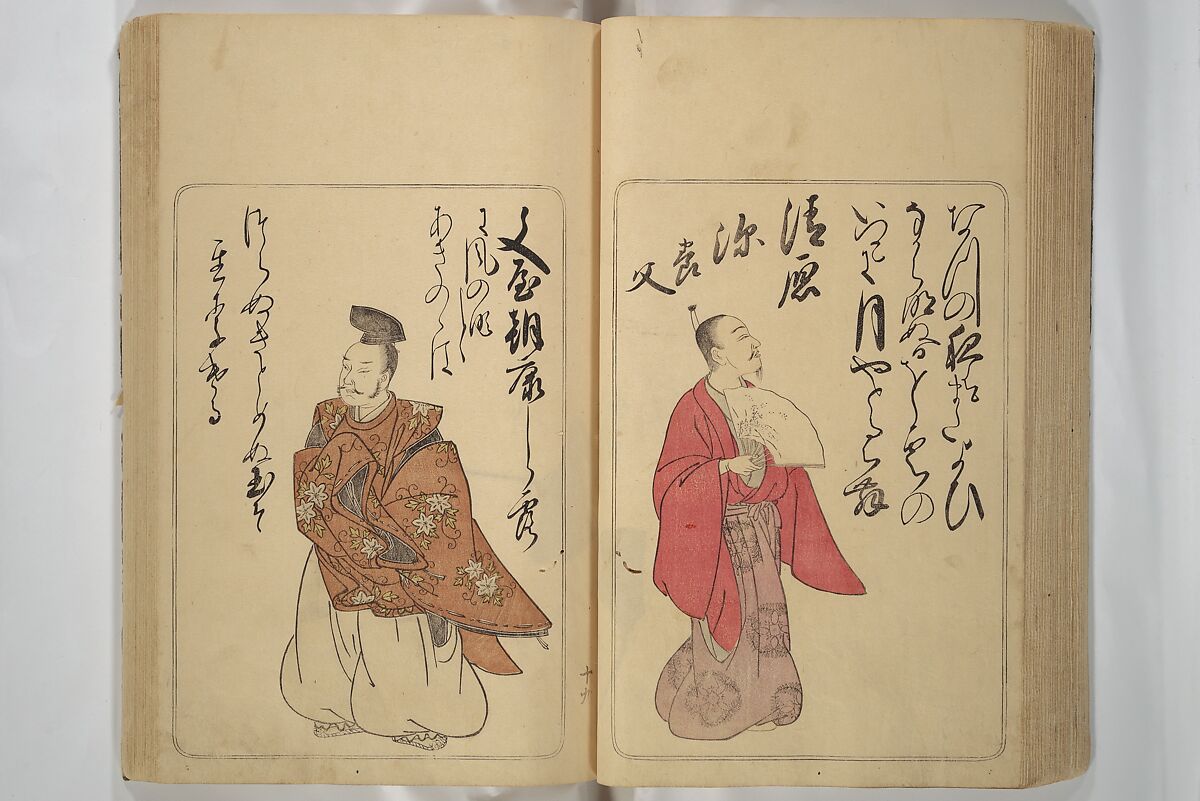 なつの夜はまたよひ
なから明ぬるをくもの
いつこに月やとるらむ
清原
深
養
父
文屋朝康しら露
に風の吹しく
あきのゝは
つらぬきとめぬ玉そ
ちりける